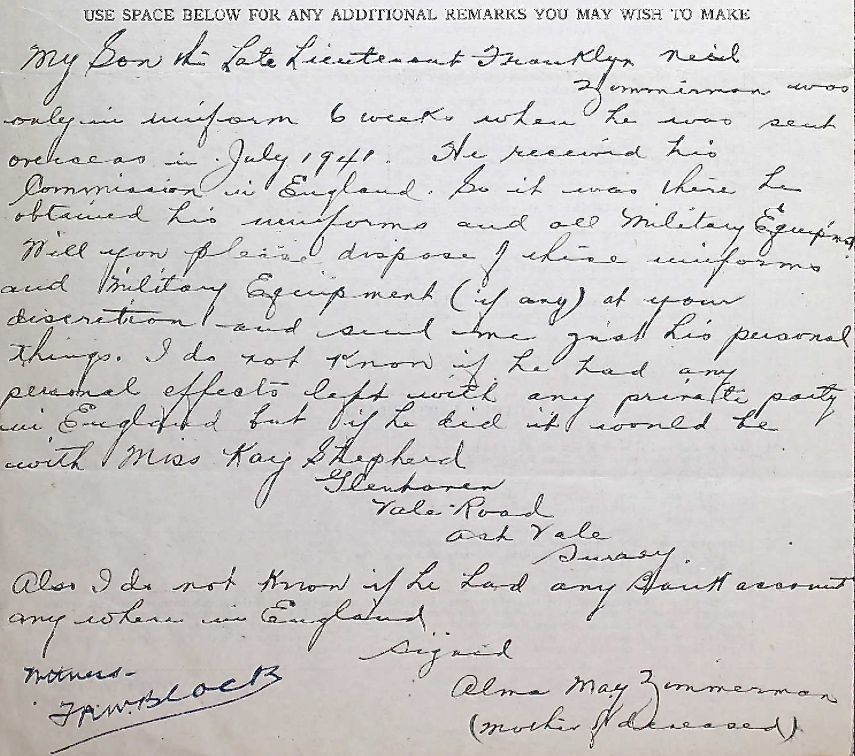 USE SPACE BELOW FOR ANY ADDITIONAL REMARKS YOU MAY WISH TO MAKE
My Son the Late Lieutenant Franklyn Neil
Zimmerman was
only in uniform 6 weeks when he was sent
overseas in July 1941. He received his
Commission in England. So it was there he
obtained his uniforms and all Military Equipmt
Will you please dispose of these uniforms
and Military Equipment (if any) at your
discretion and send me just his personal
things. I do not know if he had any
personal effects left with any private party
in England but if he did it would be
with Miss Kay Shepherd
Glenhaven
Vale Road
Ash Vale
Surrey.
Also I do not know if he had any Bank account
any where in England
Signed
Witness-
Alma May Zimmerman
BLOCK
(mother of deceased)